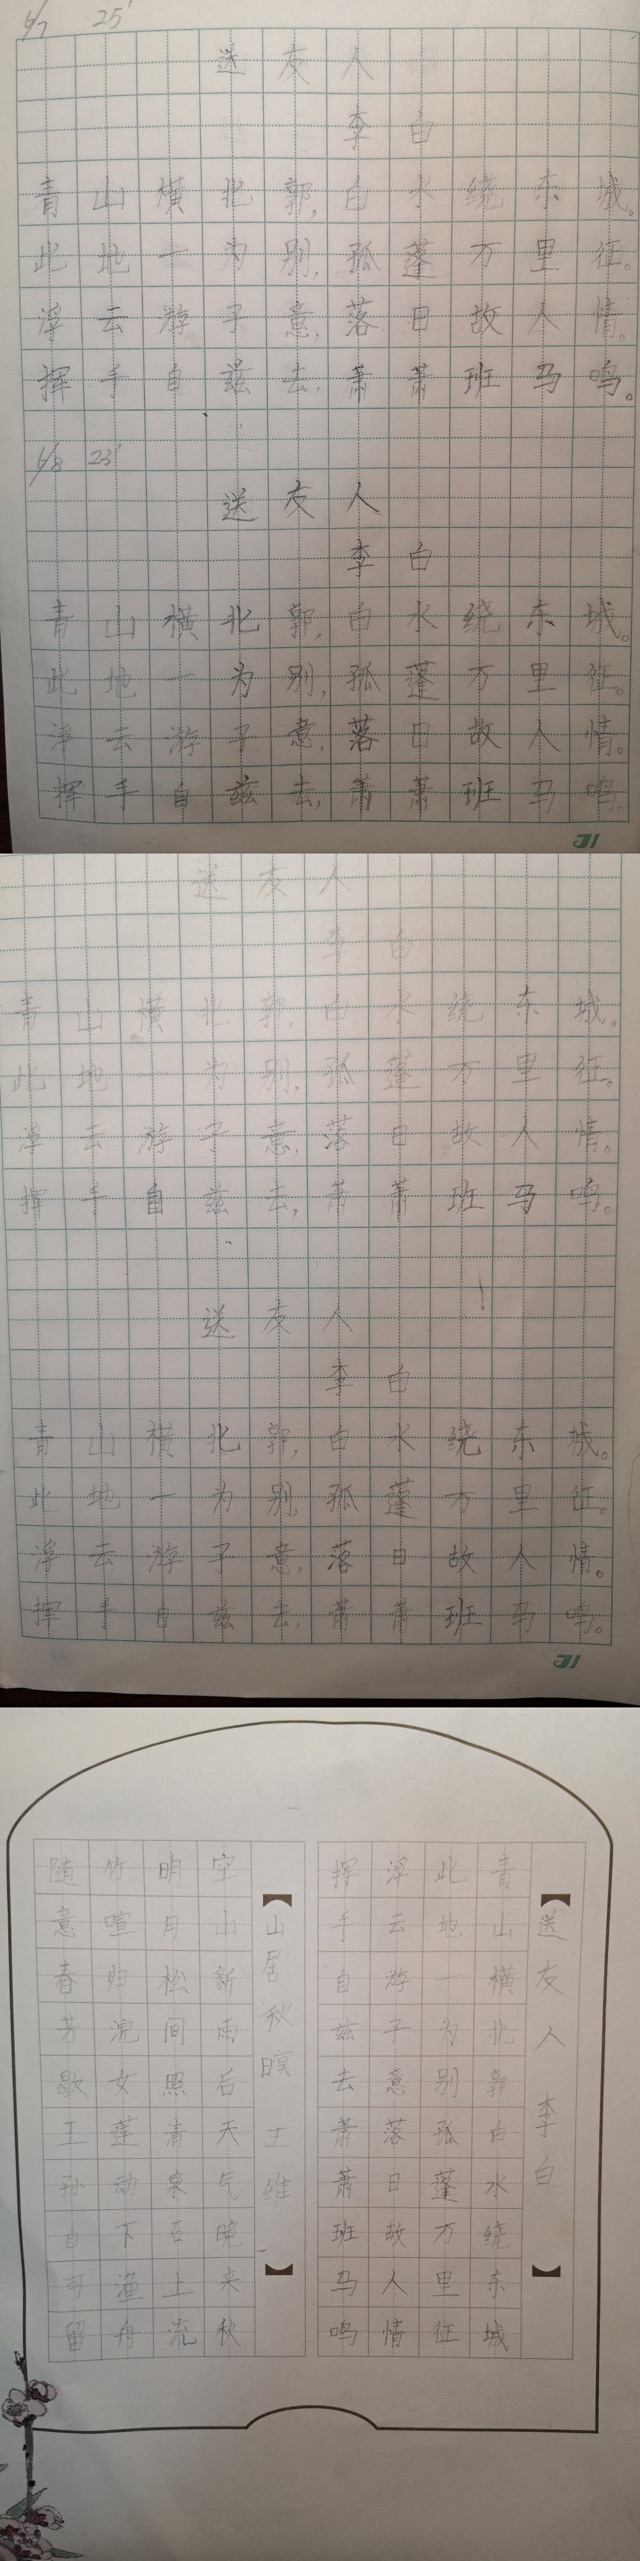 6/7 25'
送友人
李白
青山横北郭，白水绕东城。
此地一为别，孤蓬万里征。
浮云游子意，落日故人情。
挥手自兹去，萧萧班马鸣。
6/8 23'
送友人
李白
青山横北郭，白水绕东城。
此地一为别，孤蓬万里征。
浮云游子意，落日故人情。
挥手自兹去，萧萧班马鸣。
送友人
李白
青山横北郭，白水绕东城。
此地一为别，孤蓬万里征。
浮云游子意，落日故人情。
挥手自兹去，萧萧班马鸣。
送友人
李白
青山横北郭，白水绕东城。
此地一为别，孤蓬万里征。
浮云游子意，落日故人情。
挥手自兹去，萧萧班马鸣。
【送友人 李白】
青山横北郭白水绕东城
此地一为别孤蓬万里征
浮云游子意落日故人情
挥手自兹去萧萧班马鸣
【山居秋暝 王维】
空山新雨后天气晚来秋
明月松间照清泉石上流
竹喧归浣女莲动下渔舟
随意春芳歇王孙自可留